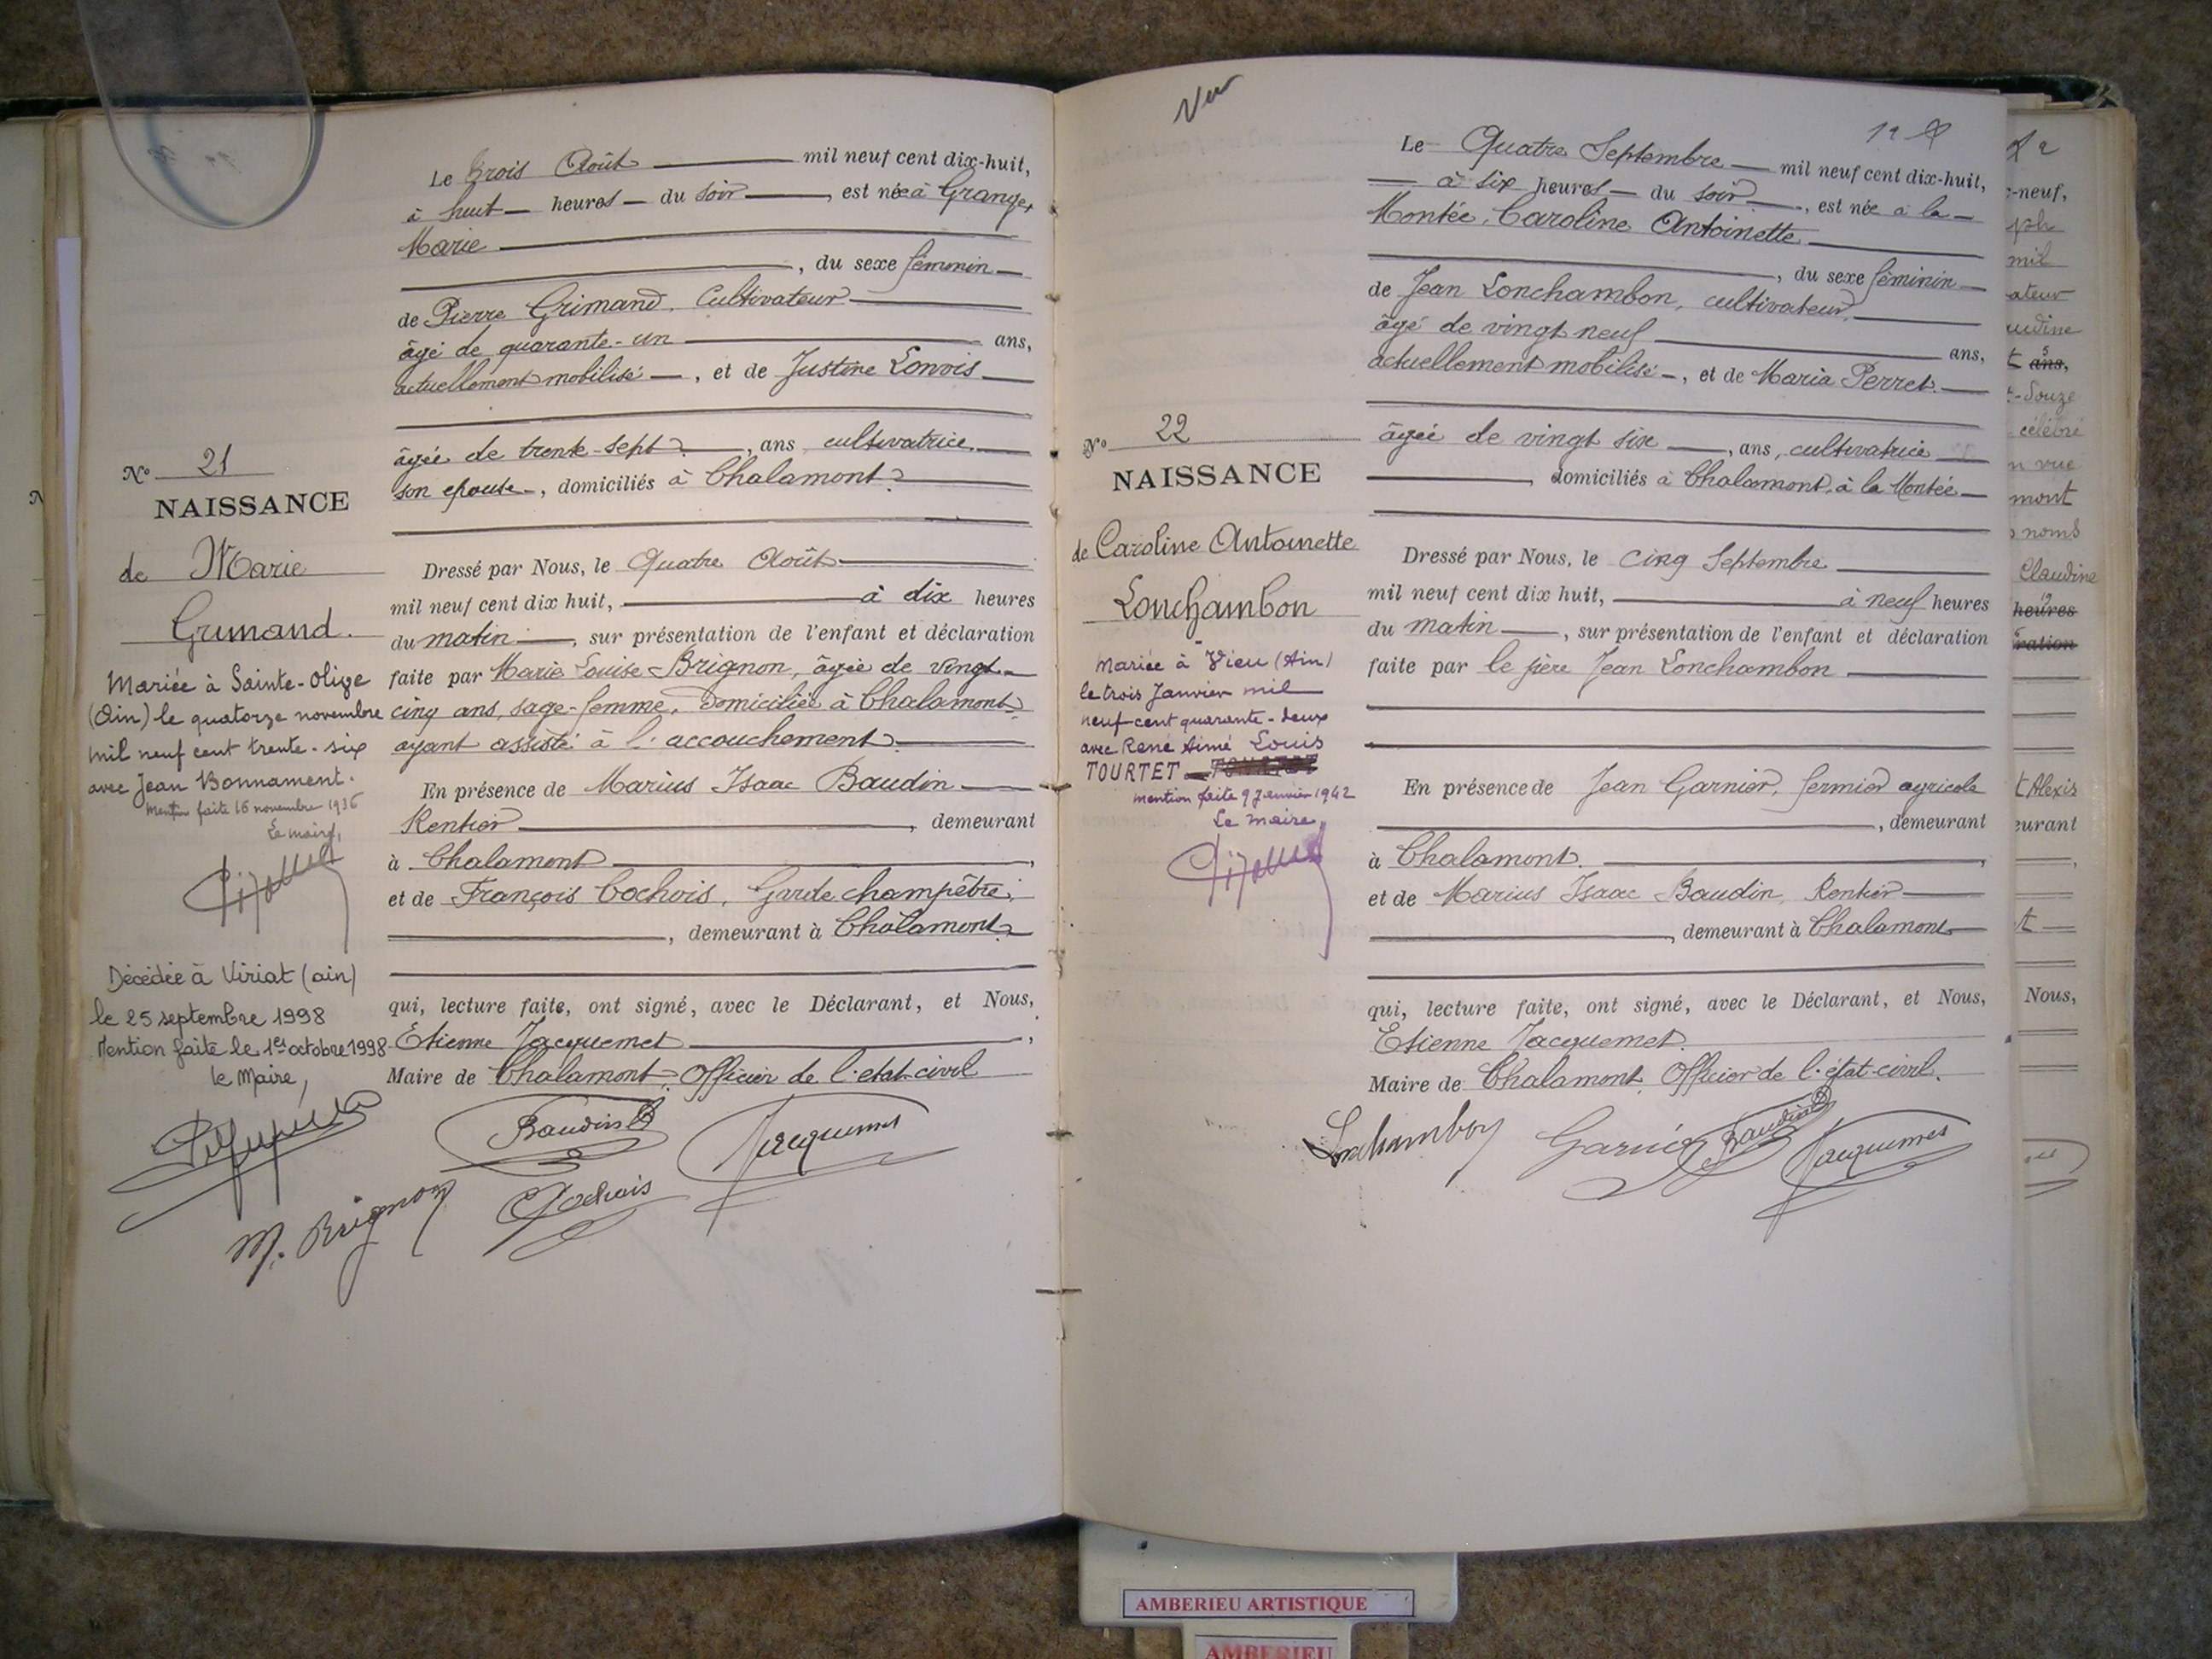 Le Trois Août mil neuf cent dix-huit,
à huit heures du soir, est née à Granges,
Marie
, du sexe féminin
de Pierre Grimand, Cultivateur
âgé de quarante-un ans,
actuellement mobilisé, et de Justine
âgée de trente-sept, ans cultivatrice
son épouse, domiciliés à Chalamont
No 21
NAISSANCE
de Marie
Grimand.
Mariée à Sainte-Olive
(Ain) le quatorze novembre
mil neuf cent trente-six
avec Jean Bonnament.
Mention faite 16 novembre 1936
Le maire,
Décédée à Viriat (ain)
le 25 septembre 1998
Mention faite le 1er octobre 1998
le Maire,
Dressé par Nous, le Quatre Août
mil neuf cent dix huit, à dix heures
du matin, sur présentation de l'enfant et déclaration
faite par Marie Louise Brignon, âgée de vingt
cinq ans, sage-femme, domiciliée à Chalamont
ayant assisté à l'accouchement
En présence de Marius Isaac Baudin
Rentier, demeurant
à Chalamont,
et de François Cochois, Garde champêtre,
, demeurant à Chalamont
qui, lecture faite, ont signé, avec le Déclarant, et Nous,
Etienne Jacquemet,
Maire de Chalamont, Officier de l'état-civil
Baudin Jacquemet
M. Brignon Cochois
Le Quatre Septembre mil neuf cent dix-huit,
à six heures du soir, est née à la
Montée, Caroline Antoinette
, du sexe féminin
de Jean Lonchambon, cultivateur,
âgé de vingt neuf ans,
actuellement mobilisé, et de Maria Perret
âgée de vingt six, ans, cultivatrice
domiciliés à Chalamont, à la Montée
No 22
NAISSANCE
de Caroline Antoinette
Lonchambon
Mariée à Vieu (Ain)
le trois Janvier mil
neuf cent quarante-deux
avec René Aimé Louis
TOURTET
mention faite 9 Janvier 1942
Le maire,
Dressé par Nous, le cinq Septembre
mil neuf cent dix huit, à neuf heures
du matin, sur présentation de l'enfant et déclaration
faite par le père Jean Lonchambon
En présence de Jean Garnier, fermier agricole
, demeurant
à Chalamont,
et de Marius Isaac Baudin, Rentier
, demeurant à Chalamont
qui, lecture faite, ont signé, avec le Déclarant, et Nous,
Etienne Jacquemet
Maire de Chalamont, Officier de l'état-civil.
Lonchambon Garnier Baudin Jacquemet
AMBERIEU ARTISTIQUE
AMBERIEU